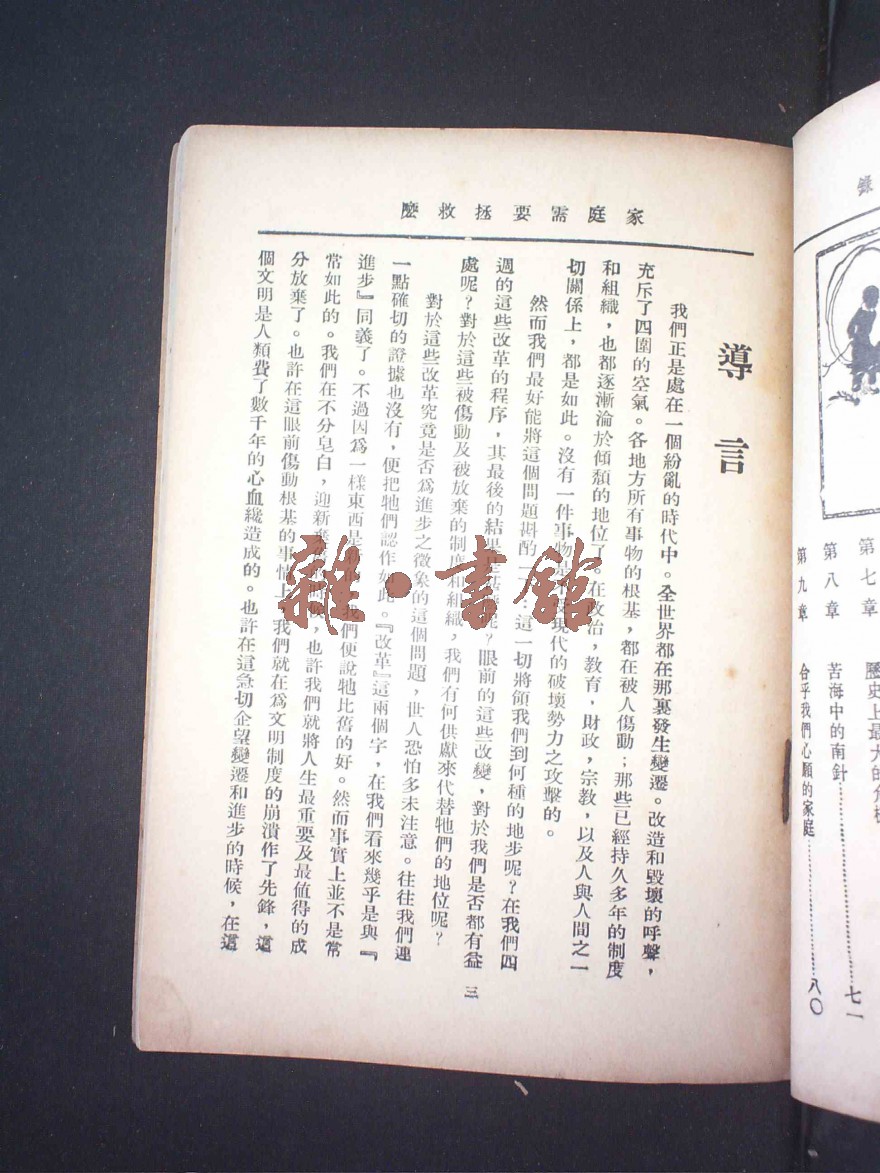 錄
第七章 歷史上最大的危
第八章 苦海中的南針……七一
第九章 合乎我們心願的家庭……八〇
家庭需要拯救麽
導言
我們正是處在一個紛亂的時代中。全世界都在那裏發生變遷。改造和毀壞的呼聲，
充斥了四圍的空氣。各地方所有事物的根基，都在被人傷動；那些已經持久多年的制度
和組織，也都逐漸淪於傾頹的地位了。在政治，教育，財政，宗教，以及人與人間之一
切關係上，都是如此。沒有一件事物 現代的破壞勢力之攻擊的。
然而我們最好能將這個問題斟酌一 ：這一切將領我們到何種的地步呢？在我們四
週的這些改革的程序，其最後的結果 呢？眼前的這些改變，對於我們是否都有益
處呢？對於這些被傷動及被放棄的制度和組織，我們有何供獻來代替牠們的地位呢？
對於這些改革究竟是否爲進步之徵象的這個問題，世人恐怕多未注意。往往我們連
一點確切的證據也沒有，便把牠們認作如此。『改革』這兩個字，在我們看來幾乎是與『
進步』同義了。不過因爲一樣東西是 我們便說牠比舊的好。然而事實上並不是常
常如此的。我們在不分皂白，迎新棄 候，也許我們就將人生最重要及最值得的成
分放棄了。也許在這眼前傷動根基的事情上，我們就在爲文明制度的崩潰作了先鋒，這
個文明是人類費了數千年的心血纔造成的。也許在這急切企望變遷和進步的時候，在這
三
雜·書館